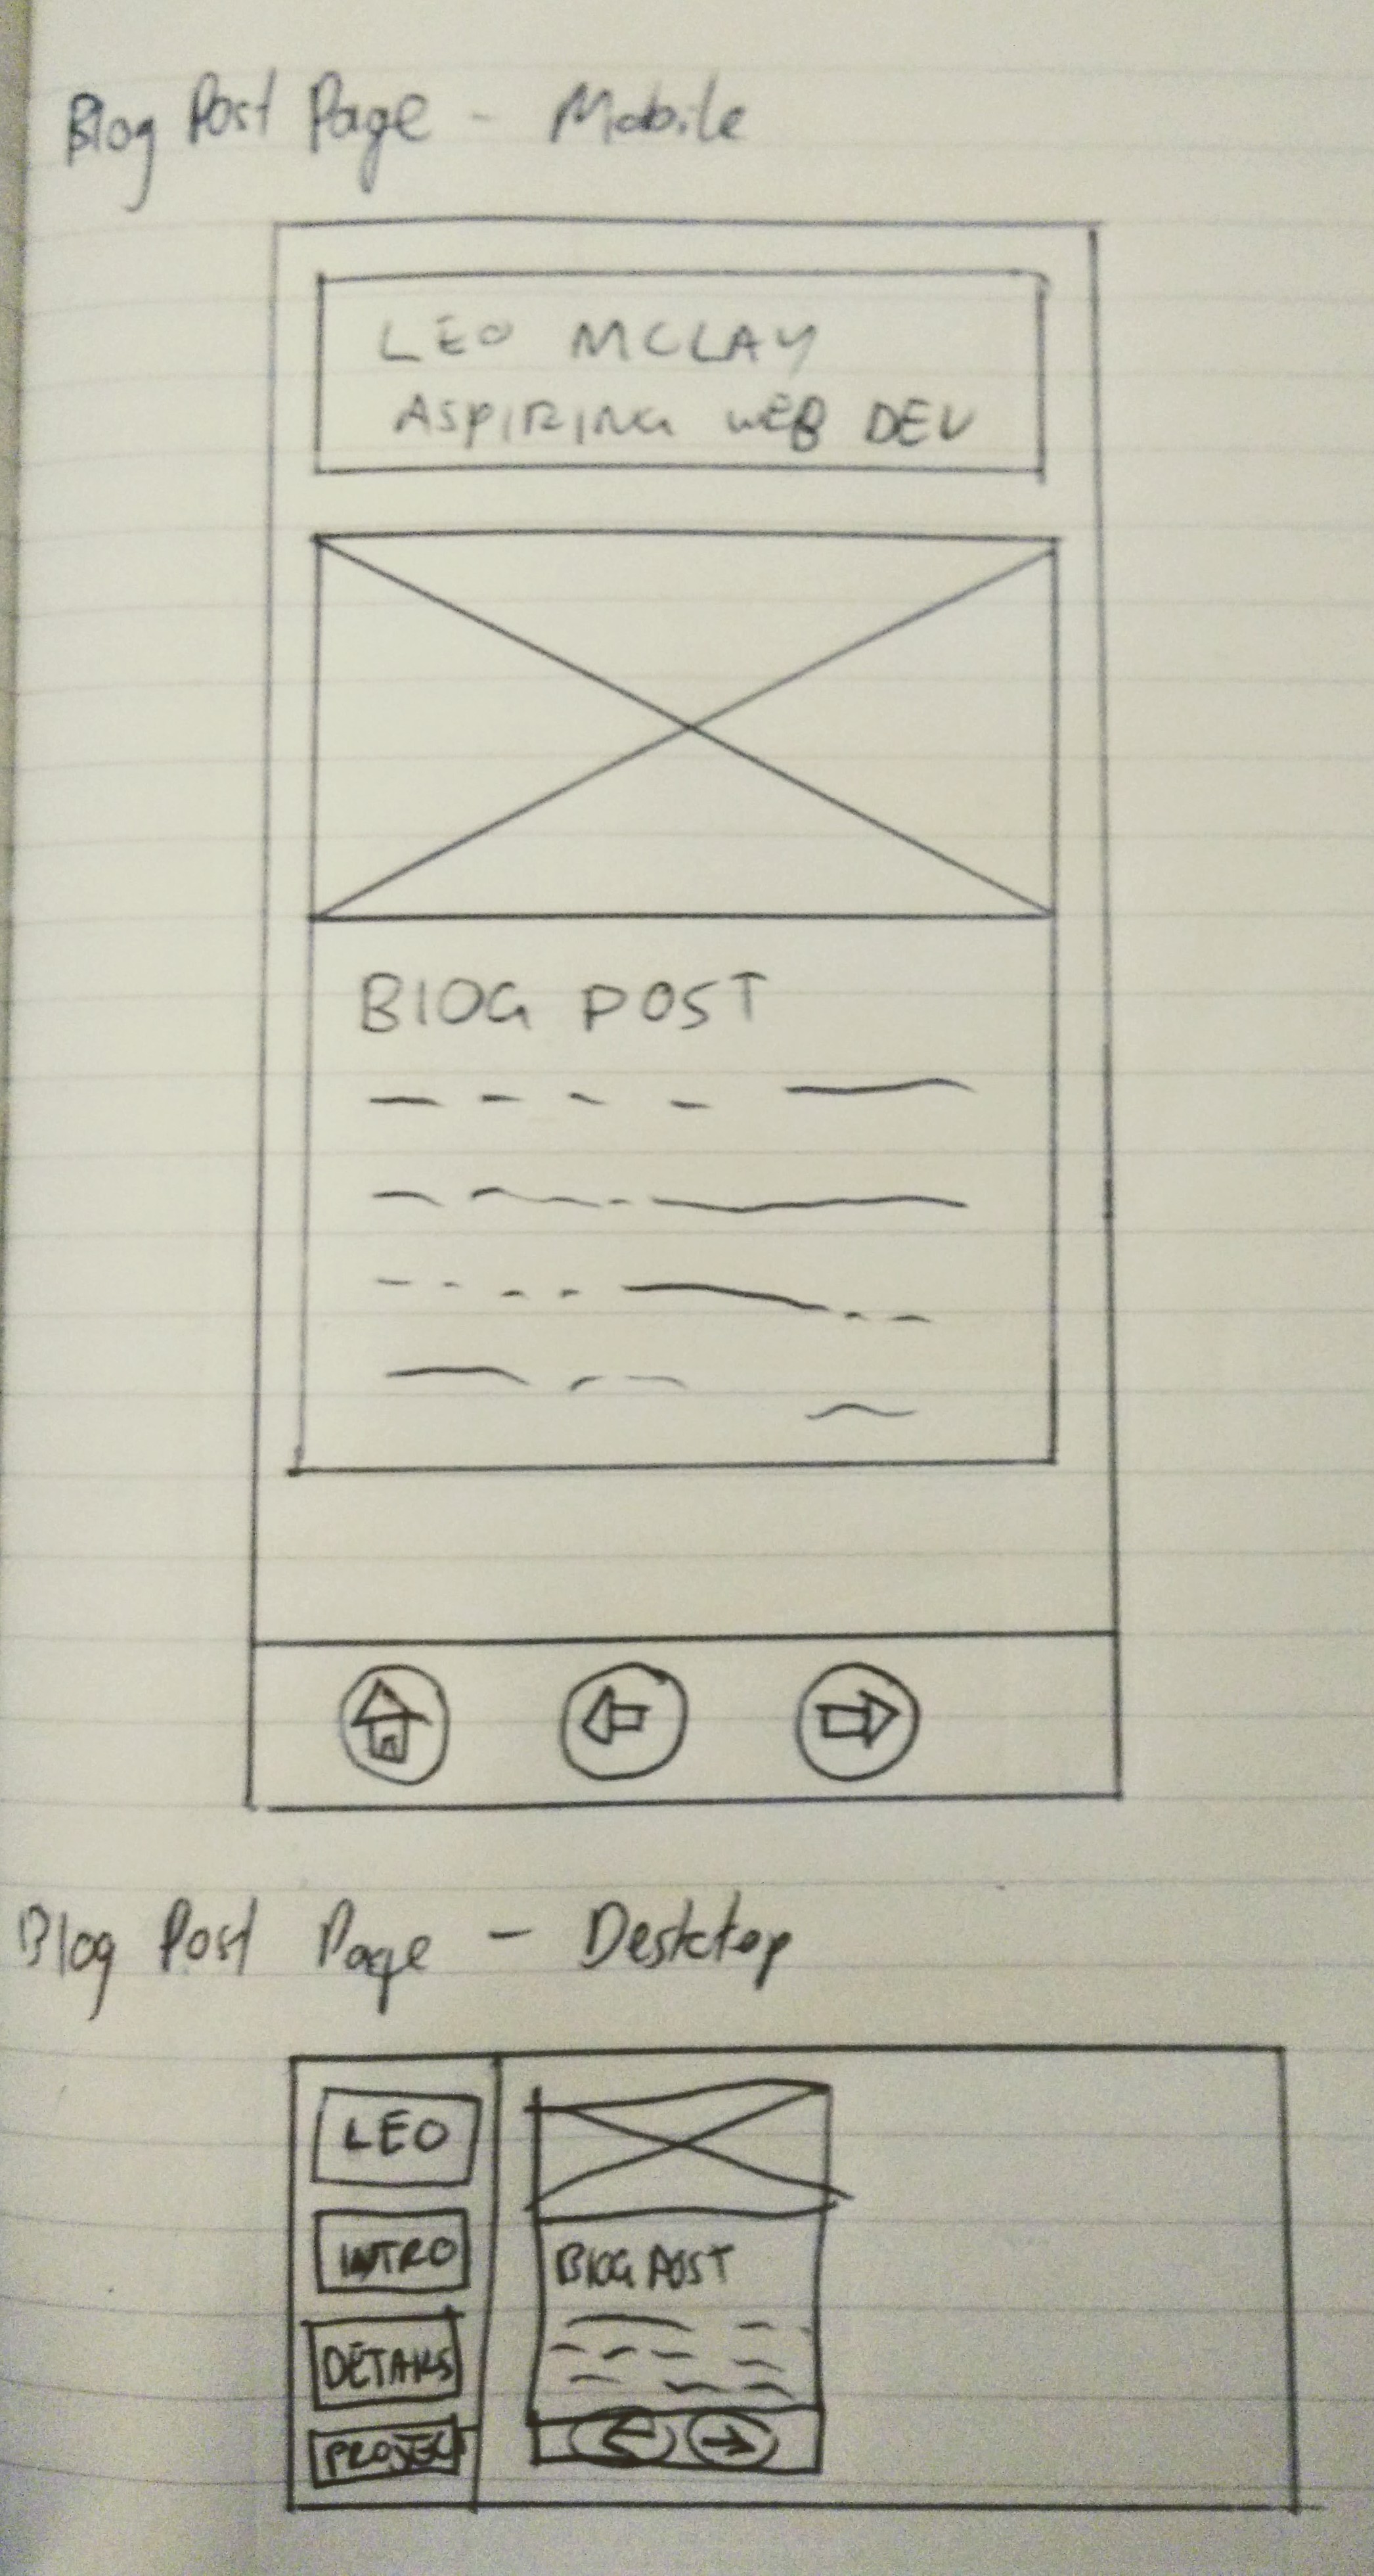 Blog Post Page - Mobile
LEO MCLAY
ASPIRING WEB DEV
BLOG POST
Blog Post Page - Desktop
LEO
INTRO
DETAILS
PROJEC
BLOG POST